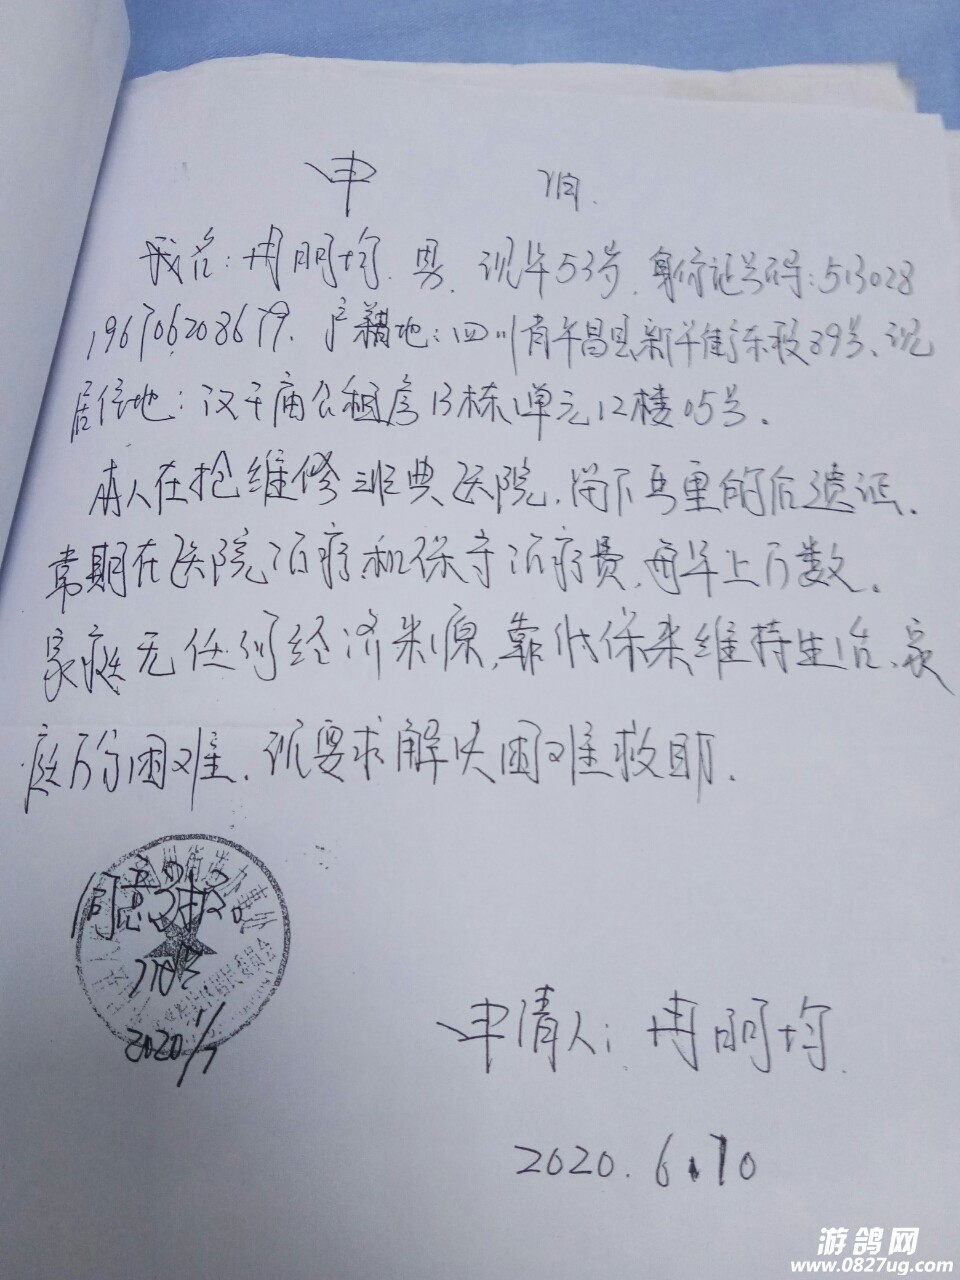 申 请.
我名:冉丽均.男.现年53岁.身份证号码:513028
196706208679.户籍地:四川省平昌县新平街东段89号、现
居住地:汉王庙公租房13栋1单元12楼05号.
本人在抢维修班典医院,留下严重的后遗证.
常期在医院治疗和保守治疗费,每年上万数.
家庭无任何经济来源,靠低保来维持生活、家
庭万分困难.现要求解决困难救助.
同意
2020
申请人:冉丽均.
2020.6.10
游鸽网
www.0827ug.com